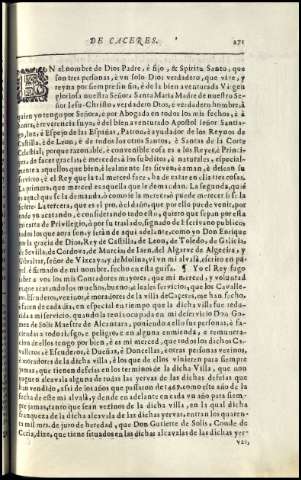 DE CACERES. 271
EN el nombre de Dios Padre, è fijo, & Spiritu Santo, que
son tres personas, è vn solo Dios verdadero, que viue, y
reyna por siempre sin fin, è de la bien auenturada Virgen
gloriosa nuestra Señora Santa Maria Madre de nuestro Se-
ñor Iesu-Christo, verdadero Dios, è verdadero hombre, à
quien yo tengo por Señora, è por Abogada en todos los mis fechos, è à
honra, è seruicio suyo, è del bienauenturado Apostol Señor Santia-
go, luz, è Espejo de las Españas, Patron, è ayudador de los Reyes de
Castilla, è de Leon, è de todos los otros Santos, è Santas de la Corte
Celestial; porque razonable, è conuenible cosa es a los Reyes, è Princi-
pes, de facer gracias, è mercedes à los subditos, è naturales, especial-
mente a aquellos que bien, è lealmente les siruen, è aman, è desean su
seruicio; è el Rey que la tal merced face, ha de catar en ello tres cosas.
La primera, que merced es aquella que le demandan. La segunda, quiẽ
es aquel que se la demanda, ò como se la merece, ò puede merecer si se la
hiziere. La tercera, que es el pro, ò el daño, que por ello le puede venir, por
ende yo acatando, è considerando todo esto, quiero que sepan por esta
mi carta de Priuilegio, è por su traslado, signado de Escriuano publico,
todos los que aora son, y seran de aqui adelante, como yo Don Enrique
por la gracia de Dios, Rey de Castilla, de Leon, de Toledo, de Galicia,
de Seuilla, de Cordoua, de Murcia, de Iaen, del Algarue, de Algecira, y
Gibraltar, señor de Vizcaya, y de Molina, vi vn mi alvalà, escrito en pa-
pel è firmado de mi nombre, fecho en esta guisa. ¶ Yo el Rey fago
saber a vos los mis Contadores mayores, que mi merced, y voluntad
es, que acatando los muchos, buenos, è leales seruicios, que los Caualle-
ros, Escuderos, vezinos, è moradores de la villa de Caceres, me han fecho,
è fazen de cada dia, en especial en tiempo que la dicha villa fue redu-
zida a mi seruicio, quando la tenia ocupada en mi deseruicio Don Go-
mez de Solis Maestre de Alcantara, poniendo a ello sus personas, è fa-
ziendas a todo riesgo, è peligro, è en alguna enmienda, è remunera-
cion de ellos tengo por bien, è es mi merced, que todos los dichos Ca-
valleros, è Escuderos, è Dueñas, è Donzellas, è otras personas vezinos,
è moradores de la dicha villa, è los que de ellos vinieren para siempre
jamas, que tienen defesas en los terminos de la dicha villa, que non
paguen alcavala alguna de todas las yervas de las dichas defesas que
han vendido, assi de los años que passaron de 1469. como este año de la
fecha de este mi alvalà, y dende en adelante en cada vn año para siem-
pre jamas, tanto que sean vezinos de la dicha villa, en la qual dicha
franqueza de la dicha alcavala de las dichas yervas, entran los quaren-
ta mil mrs. de juro de heredad, que Don Gutierre de Solis, Conde de
Coria, dize, que tiene situados en las dichas alcavalas de las dichas yer-
vas,